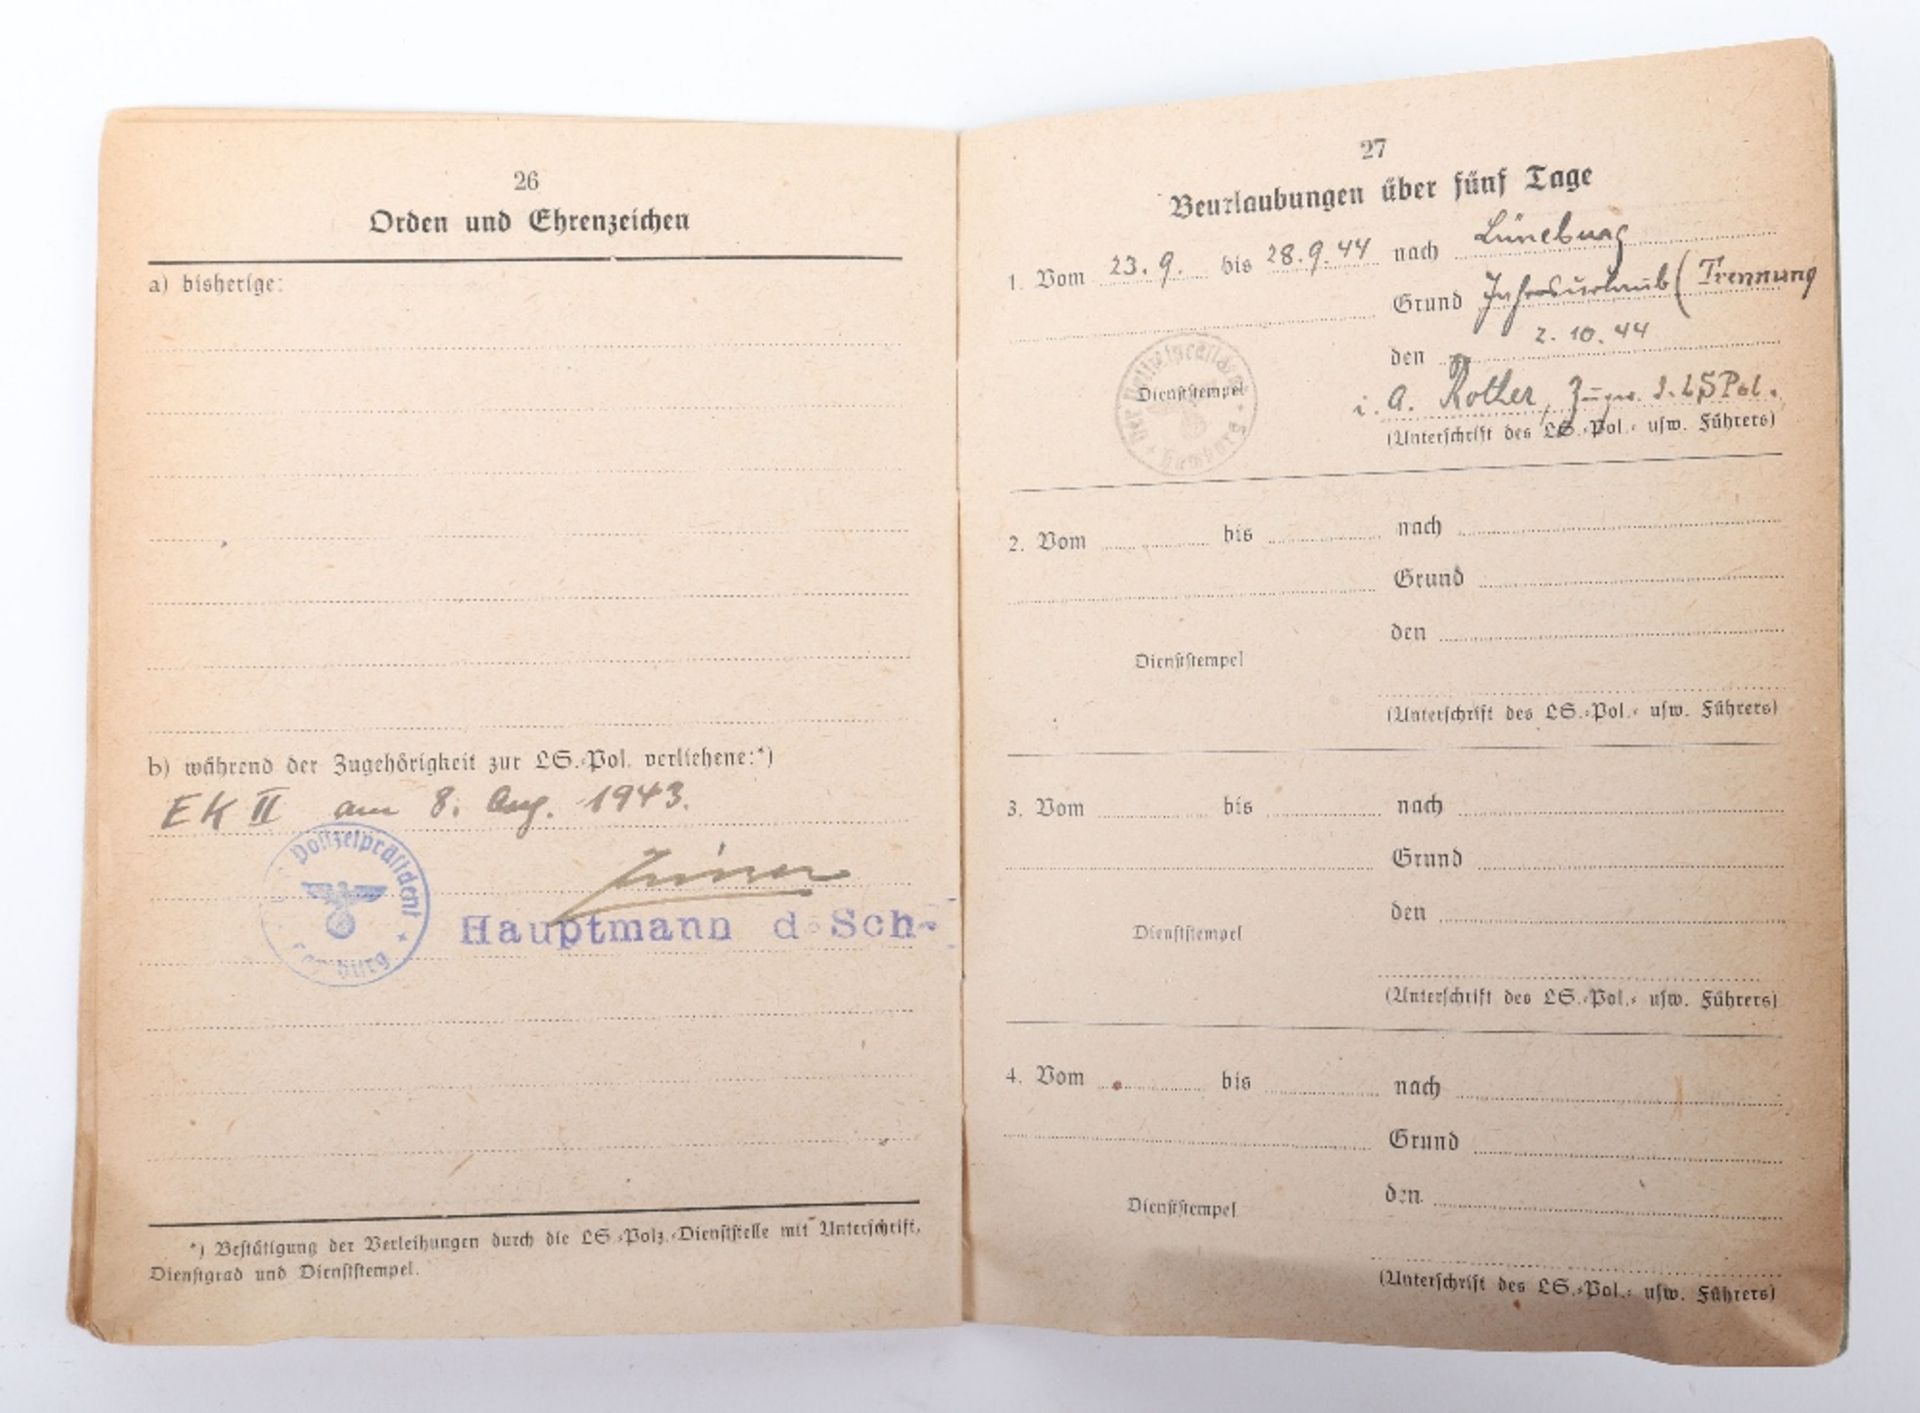 26
Orden und Ehrenzeichen
a) bisherige:
b) während der Zugehörigkeit zur LS.-Pol. verliehene:*)
EK II am 8. Aug. 1943.
Polizeipräsident
Hauptmann d. Sch.
*) Bestätigung der Verleihungen durch die LS.-Polz.-Dienststelle mit Unterschrift,
Dienstgrad und Dienststempel.
27
Beurlaubungen über fünf Tage
1. Vom 23. 9. bis 28. 9. 44 nach Lüneburg
Grund Jahresurlaub (Trennung
den 2. 10. 44
Der Polizeipräsident
Hamburg
Dienststempel
i. A. Rother, Zugw. d. LS Pol.
(Unterschrift des LS.-Pol.- usw. Führers)
2. Vom bis nach
Grund
den
Dienststempel
(Unterschrift des LS.-Pol.- usw. Führers)
3. Vom bis nach
Grund
den
Dienststempel
(Unterschrift des LS.-Pol.- usw. Führers)
4. Vom bis nach
Grund
den
Dienststempel
(Unterschrift des LS.-Pol.- usw. Führers)